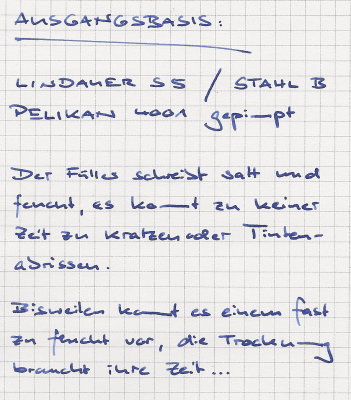 AUSGANGSBASIS:
LINDAUER S5 / STAHL B
PELIKAN 4001 gepimpt
Der Füller schreibt satt und
feucht, es kommt zu keiner
Zeit zu Kratzen oder Tinten-
abrissen.
Bisweilen kommt es einem fast
zu feucht vor, die Trocknung
braucht ihre Zeit...